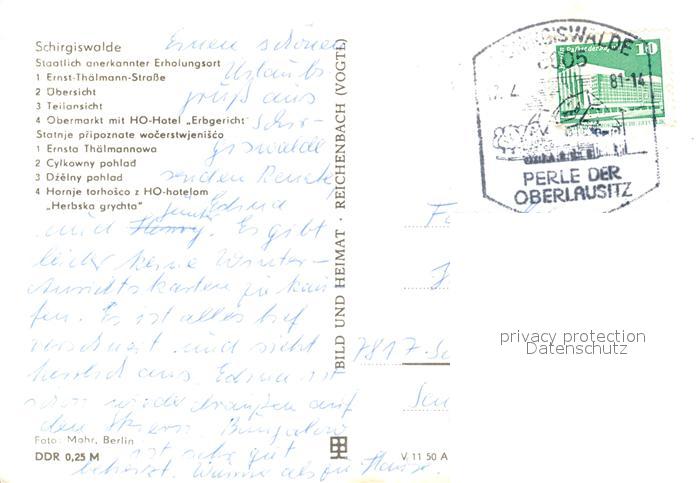 Schirgiswalde
Staatlich anerkannter Erholungsort
1 Ernst-Thälmann-Straße
2 Übersicht
3 Teilansicht
4 Obermarkt mit HO-Hotel „Erbgericht"
Statnje připoznate wočerstwjenišćo
1 Ernsta Thälmannowa
2 Cylkowny pohlad
3 Dźělny pohlad
4 Hornje torhošćo z HO-hotelom
„Herbska grychta"
Einen schönen
Urlaubs-
gruß aus
Schir-
giswalde
senden Renate,
Edna
und Es gibt
leider keine Winter-
Ansichtskarten zu kau-
fen. Es ist alles tief
verschneit und sieht
herrlich aus. Edna ist
schon wieder draußen auf
den Skiern. Bungalow
ist sehr gut
beheizt. Wärme als zu Hause.
Foto: Mohr, Berlin
DDR 0,25 M
BILD UND HEIMAT · REICHENBACH (VOGTL)
V 11 50 A
7817
SCHIRGISWALDE
8605
81-14
PERLE DER
OBERLAUSITZ
10
privacy protection
Datenschutz